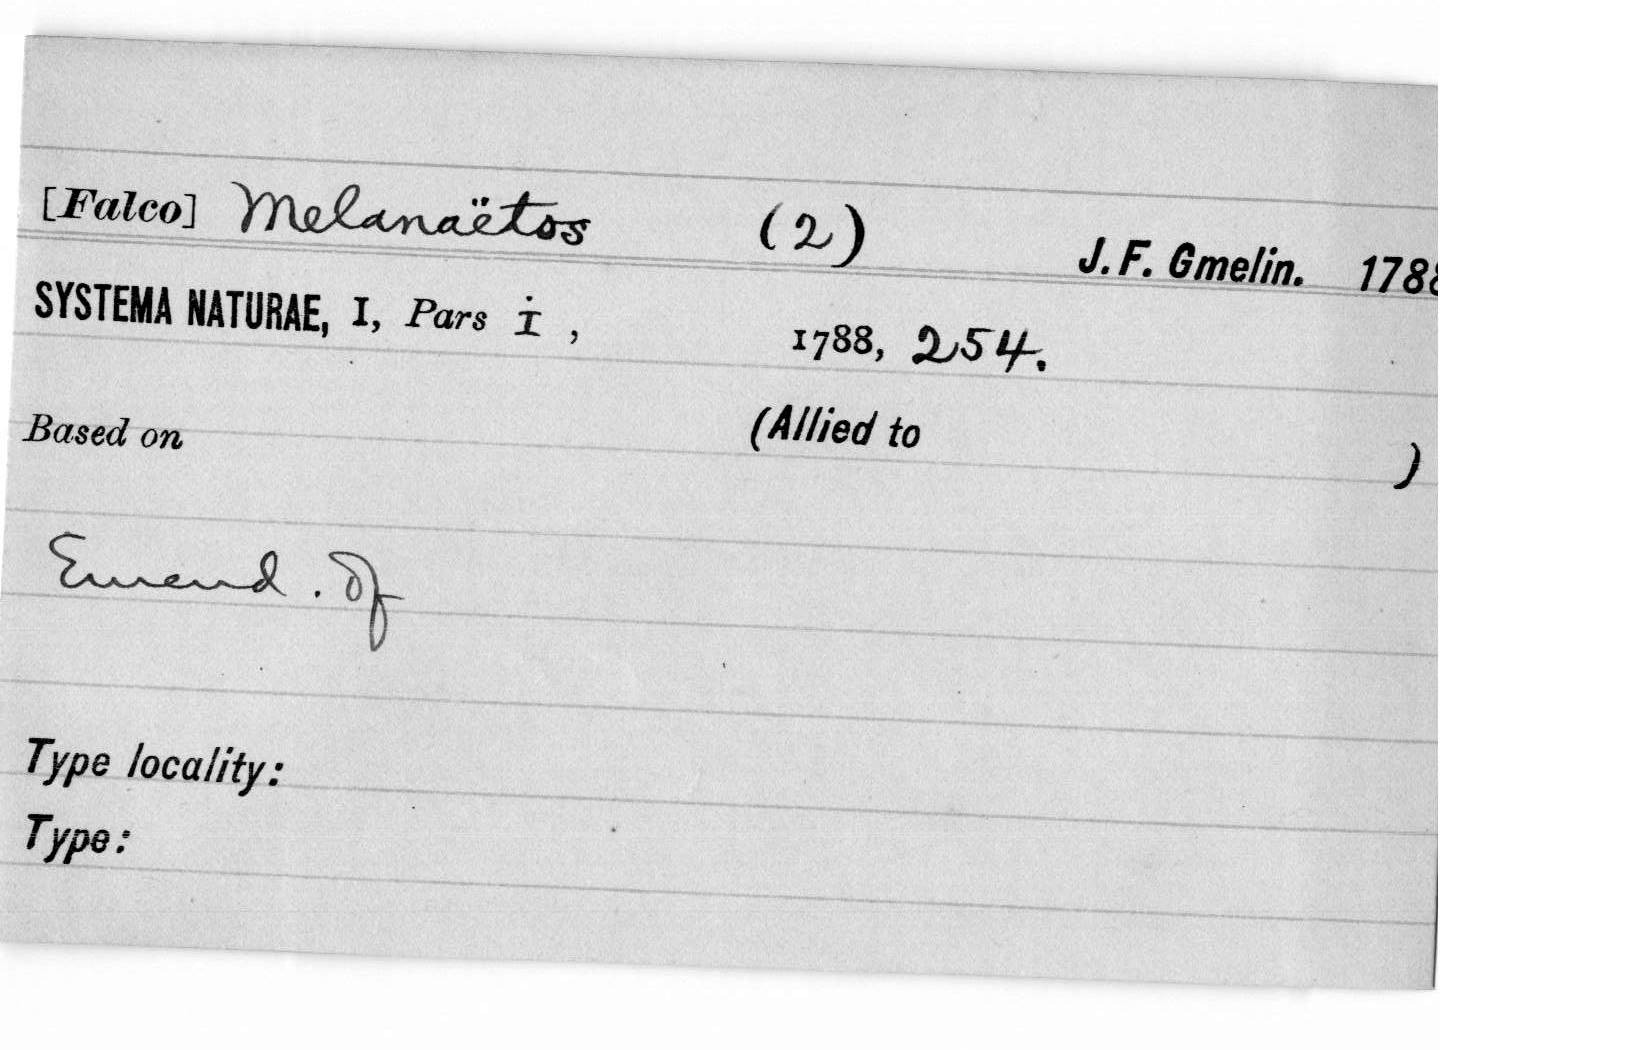 [Falco] Melanaëtos (2) J. F. Gmelin. 1788
SYSTEMA NATURAE, I, Pars i, 1788, 254.
Based on (Allied to )
Emend. of
Type locality:
Type: